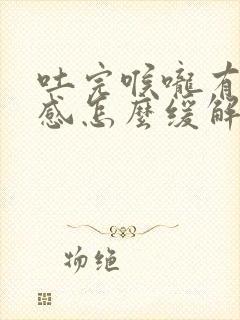 吐完喉嚨有
感怎麼緩解
物绝